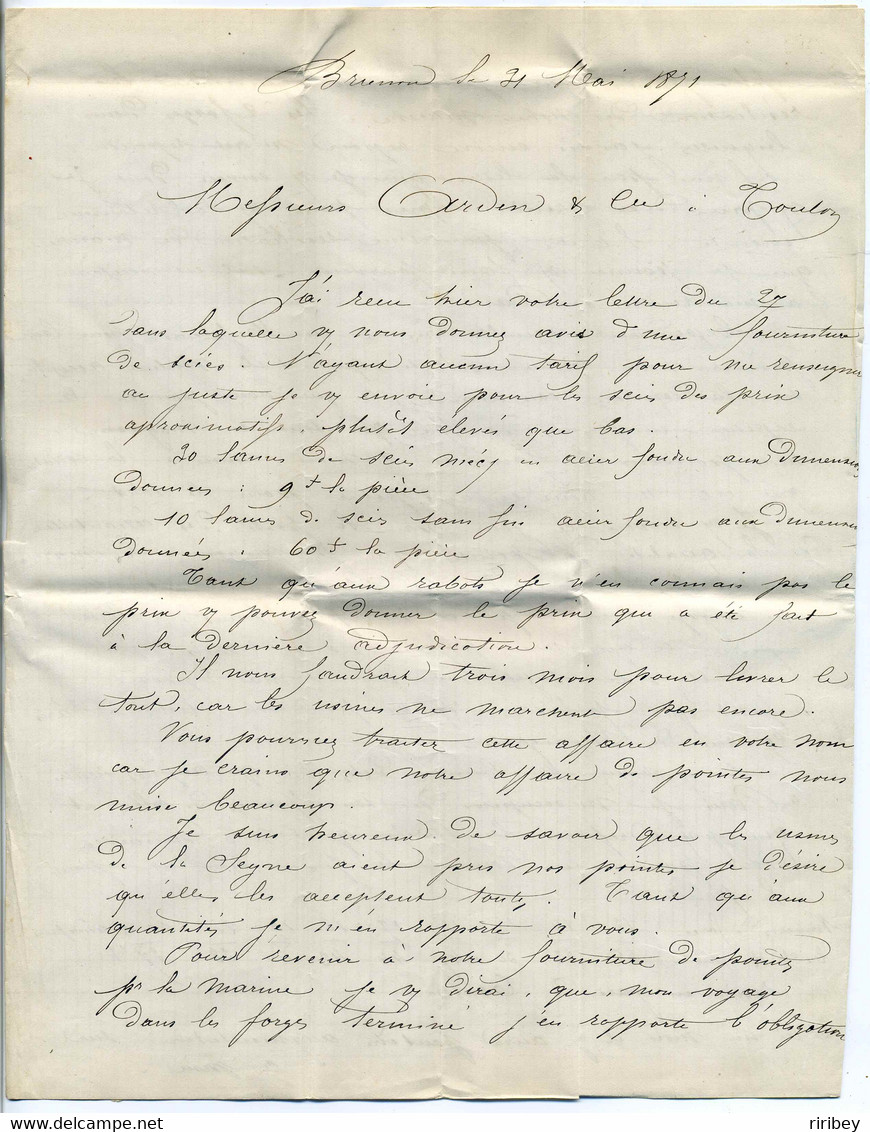 Brienon le 31 Mai 1871
Messieurs Arden & Cie à Toulon
J'ai recu hier votre lettre du 27
dans laquelle vs nous donnez avis d'une fourniture
de scies. N'ayant aucun tarif pour me renseigner
au juste je vs envoie pour les scies des prix
aproximatifs, plutôt élevés que bas.
30 lames de scies mécs en acier fondu aux dimensions
données : 9f la pièce
10 lames de scies sans fin acier fondu aux dimensions
données : 60f la pièce
Tant qu'aux rabots je n'en connais pas le
prix vs pouvez donner le prix qui a été fait
à la dernière adjudication.
Il nous faudrait trois mois pour livrer le
tout, car les usines ne marchent pas encore.
Vous pourriez traiter cette affaire en votre nom
car je crains que notre affaire de pointes nous
nuise beaucoup.
Je suis heureux de savoir que les usines
de la Seyne aient pris nos pointes je désire
qu'elles les acceptent toutes. Tant qu'aux
quantités je m'en rapporte à vous.
Pour revenir à notre fourniture de pointes
pr la marine je vs dirai, que, mon voyage
dans les forges terminé j'en rapporte l'obligation
riribey